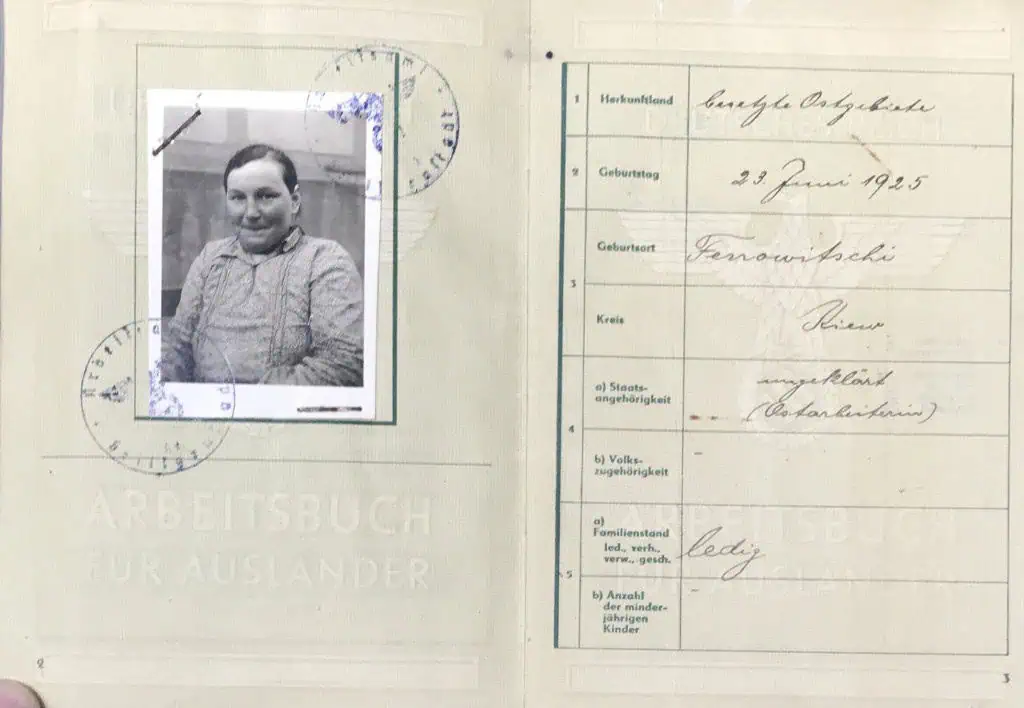 ARBEITSBUCH
FÜR AUSLÄNDER
2
1 Herkunftland besetzte Ostgebiete
2 Geburtstag 23. Juni 1925
3 Geburtsort
Kreis Kiew
4 a) Staats-
angehörigkeit
ungeklärt
(Ostarbeiterin)
b) Volks-
zugehörigkeit -
5 a)
Familienstand
led., verh.,
verw., gesch.
ledig
b) Anzahl
der minder-
jährigen
Kinder
-
ARBEITSBUCH
3